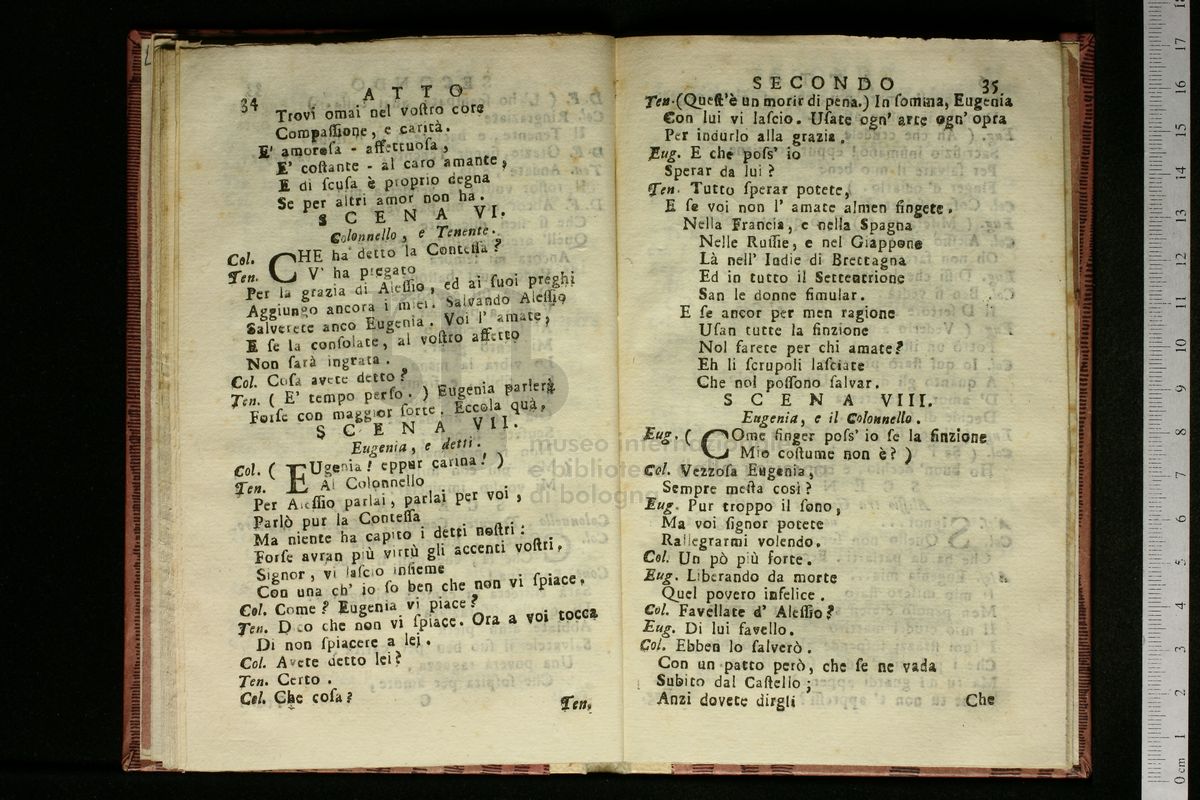 34
ATTO
Trovi omai nel vostro core
Compassione, e carità.
E' amorosa - affettuosa,
E' costante - al caro amante,
E di scusa è proprio degna
Se per altri amor non ha.
SCENA VI.
Colonnello, e Tenente.
Col. CHE ha detto la Contessa?
Ten. V' ha pregato
Per la grazia di Alessio, ed ai suoi preghi
Aggiungo ancora i miei. Salvando Alessio
Salverete anco Eugenia. Voi l' amate;
E se la consolate, al vostro affetto
Non sarà ingrata.
Col. Cosa avete detto?
Ten. ( E' tempo perso. ) Eugenia parlerà
Forse con maggior sorte. Eccola quà.
SCENA VII.
Eugenia, e detti.
Col. ( EUgenia! eppur carina! )
Ten. Al Colonnello
Per Alessio parlai, parlai per voi,
Parlò pur la Contessa
Ma niente ha capito i detti nostri:
Forse avran più virtù gli accenti vostri.
Signor, vi lascio insieme
Con una ch' io so ben che non vi spiace.
Col. Come? Eugenia vi piace?
Ten. Dico che non vi spiace. Ora a voi tocca
Di non spiacere a lei.
Col. Avete detto lei?
Ten. Certo.
Col. Che cosa?
Ten.
SECONDO
35
Ten. (Quest'è un morir di pena.) In somma, Eugenia
Con lui vi lascio. Usate ogn' arte ogn' opra
Per indurlo alla grazia.
Eug. E che poss' io
Sperar da lui?
Ten. Tutto sperar potete,
E se voi non l' amate almen fingete.
Nella Francia, e nella Spagna
Nelle Russie, e nel Giappone
Là nell' Indie di Brettagna
Ed in tutto il Settentrione
San le donne simular.
E se ancor per men ragione
Usan tutte la finzione
Nol farete per chi amate?
Eh li scrupoli lasciate
Che nol possono salvar.
SCENA VIII.
Eugenia, e il Colonnello.
Eug. ( COme finger poss' io se la finzione
Mio costume non è? )
Col. Vezzosa Eugenia,
Sempre mesta così?
Eug. Pur troppo il sono,
Ma voi signor potete
Rallegrarmi volendo.
Col. Un pò più forte.
Eug. Liberando da morte
Quel povero infelice.
Col. Favellate d' Alessio?
Eug. Di lui favello.
Col. Ebben lo salverò.
Con un patto però, che se ne vada
Subito dal Castello;
Anzi dovete dirgli
Che
museo internazionale
e biblioteca
di bologna
0 cm 1 2 3 4 5 6 7 8 9 10 11 12 13 14 15 16 17 18